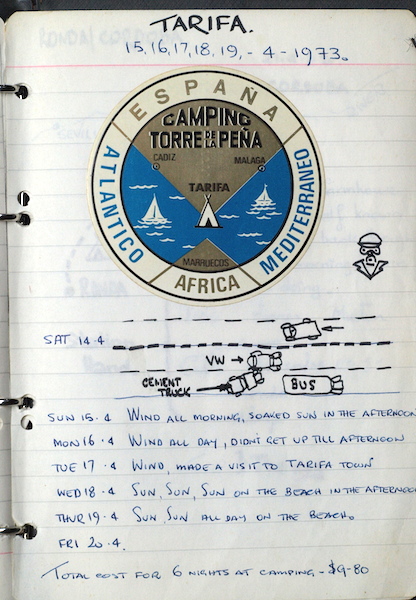 TARIFA.
15, 16, 17, 18, 19, - 4 - 1973.
ESPAÑA
CAMPING
TORRE DE LA PEÑA
CADIZ
MALAGA
TARIFA
ATLANTICO
MEDITERRANEO
MARRUECOS
AFRICA
SAT 14.4
VW →
CEMENT
TRUCK
BUS
SUN 15.4 WIND ALL MORNING, SOAKED SUN IN THE AFTERNOON
MON 16.4 WIND ALL DAY, DIDNT GET UP TILL AFTERNOON
TUE 17.4 WIND, MADE A VISIT TO TARIFA TOWN
WED 18.4 SUN, SUN, SUN ON THE BEACH IN THE AFTERNOON
THUR 19.4 SUN, SUN ALL DAY ON THE BEACH.
FRI 20.4.
TOTAL COST FOR 6 NIGHTS AT CAMPING - $9-80